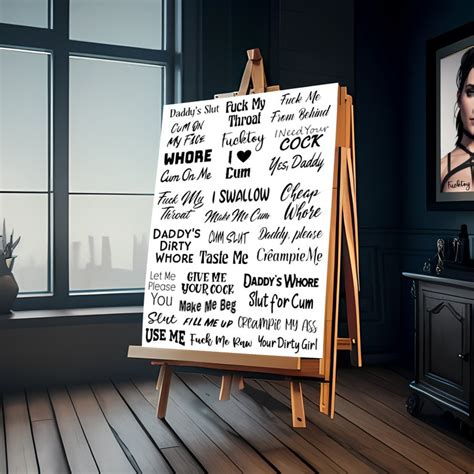 Daddy's Slut Fuck My Throat Fuck Me From Behind
Cum On My Face Fucktoy I Need Your Cock
WHORE I ♥ Cum Yes, Daddy
Cum On Me
Fuck My Throat I SWALLOW Cheap Whore
Make Me Cum
DADDY'S DIRTY WHORE CUM SLUT Daddy, please
Taste Me CreampieMe
Let Me Please You GIVE ME YOUR COCK DADDY'S WHORE
Make Me Beg Slut for Cum
Slut FILL ME UP CREAMPIE MY ASS
USE ME Fuck Me Raw Your Dirty Girl
Fucktoy